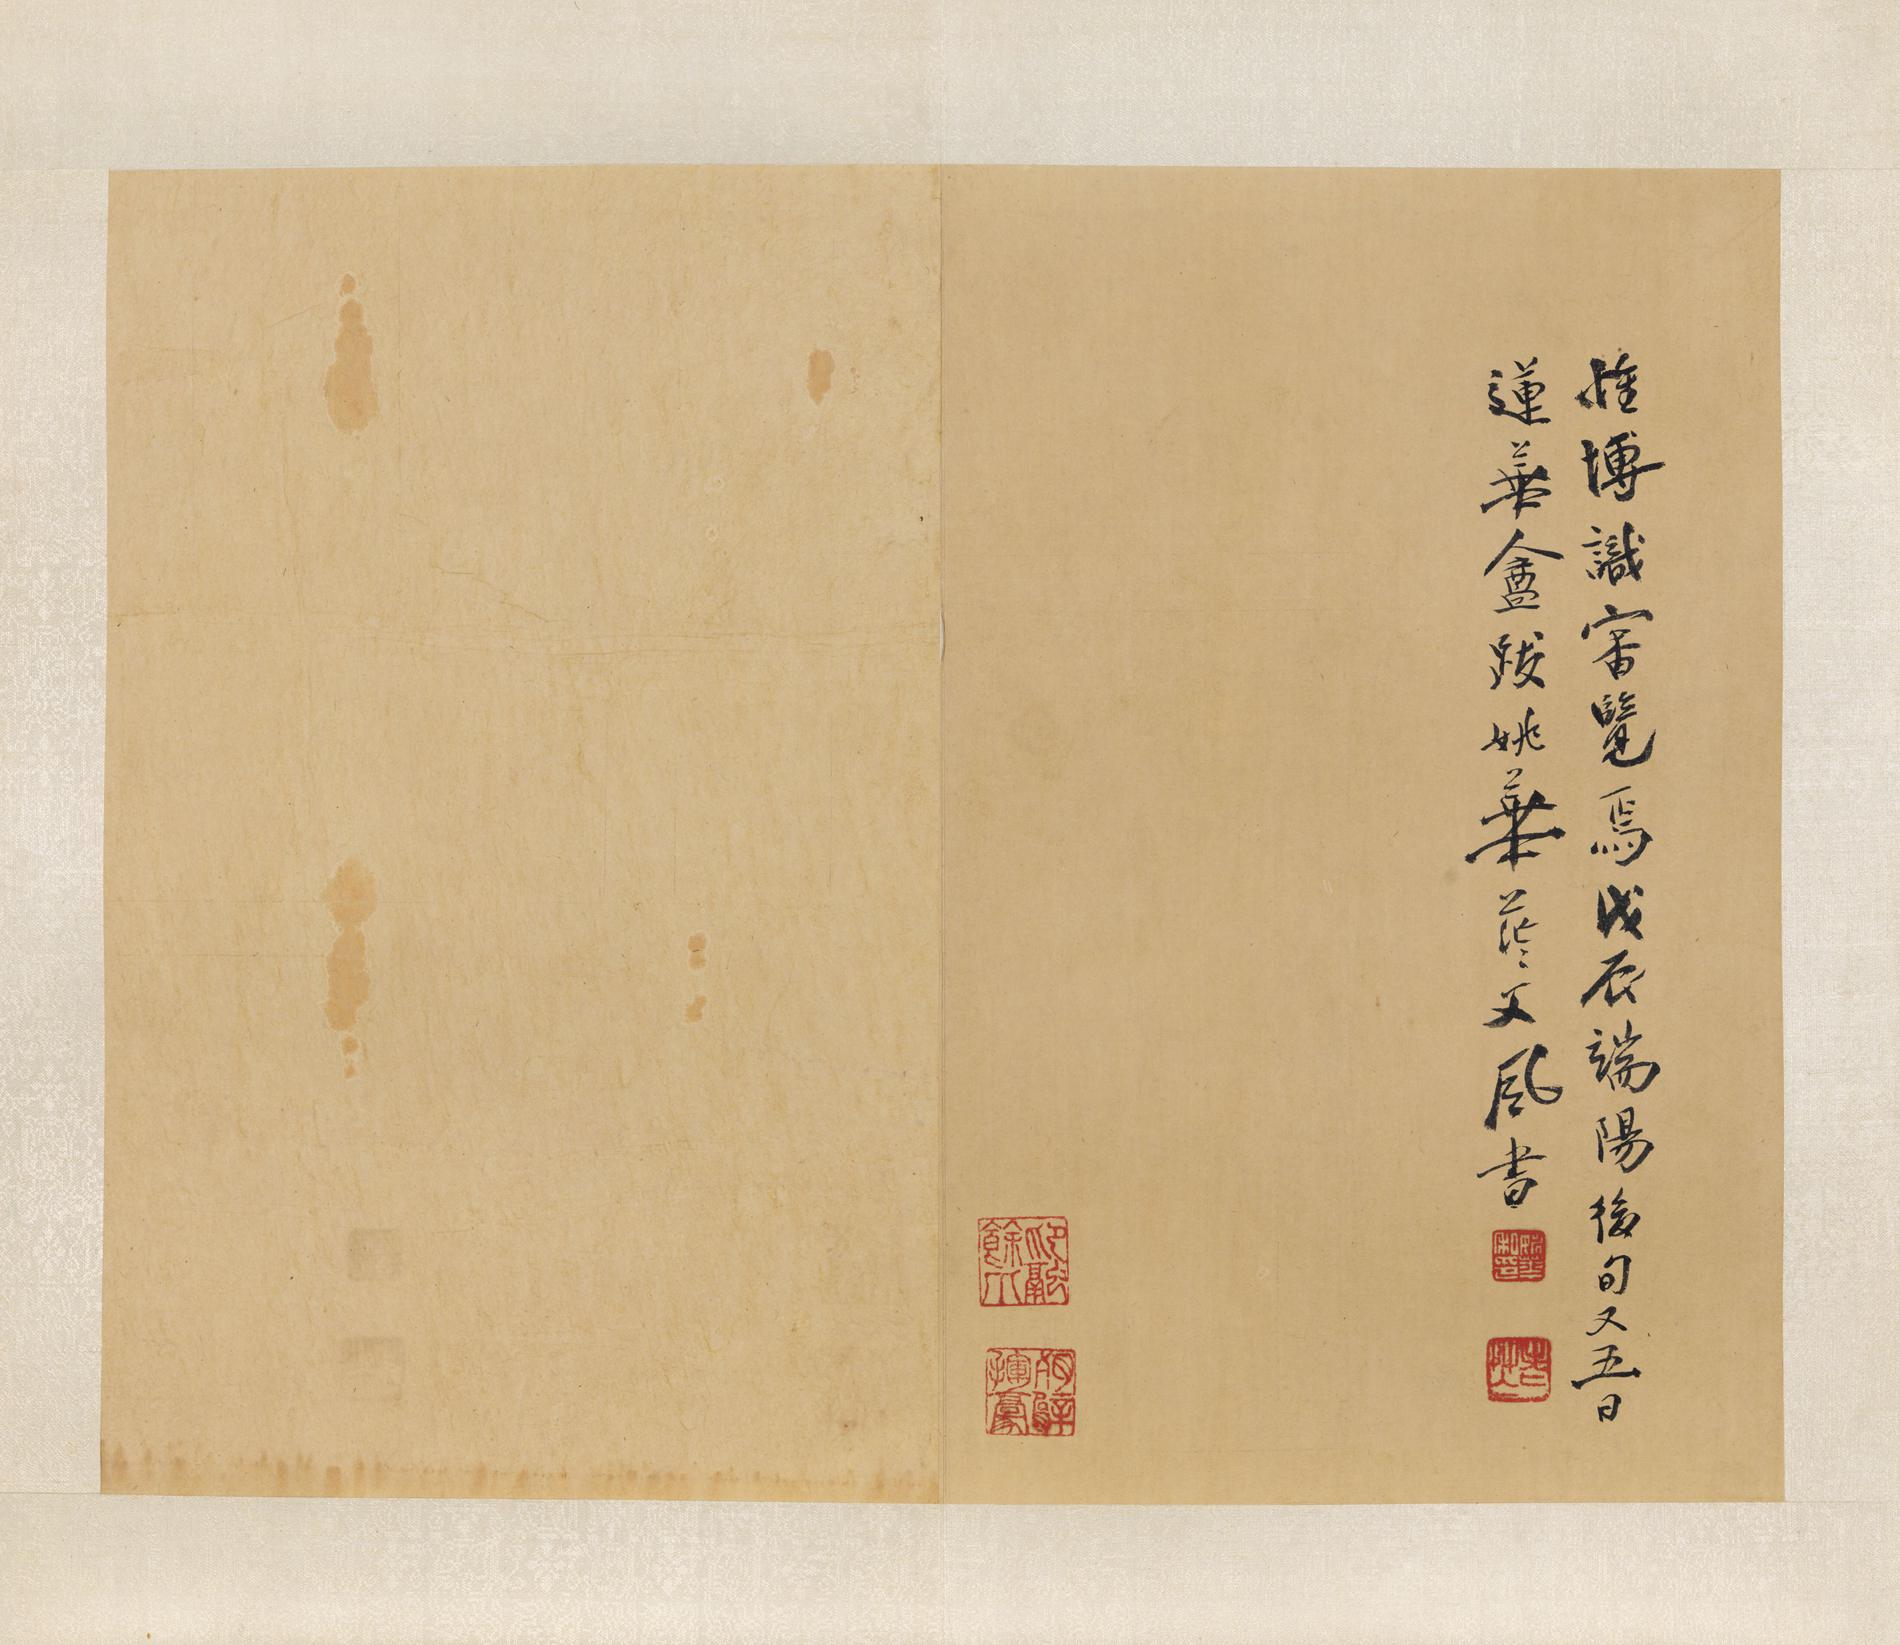 惟博識審覽焉戊辰端陽後旬又五日
蓮華盦跋姚華茫〻父風書